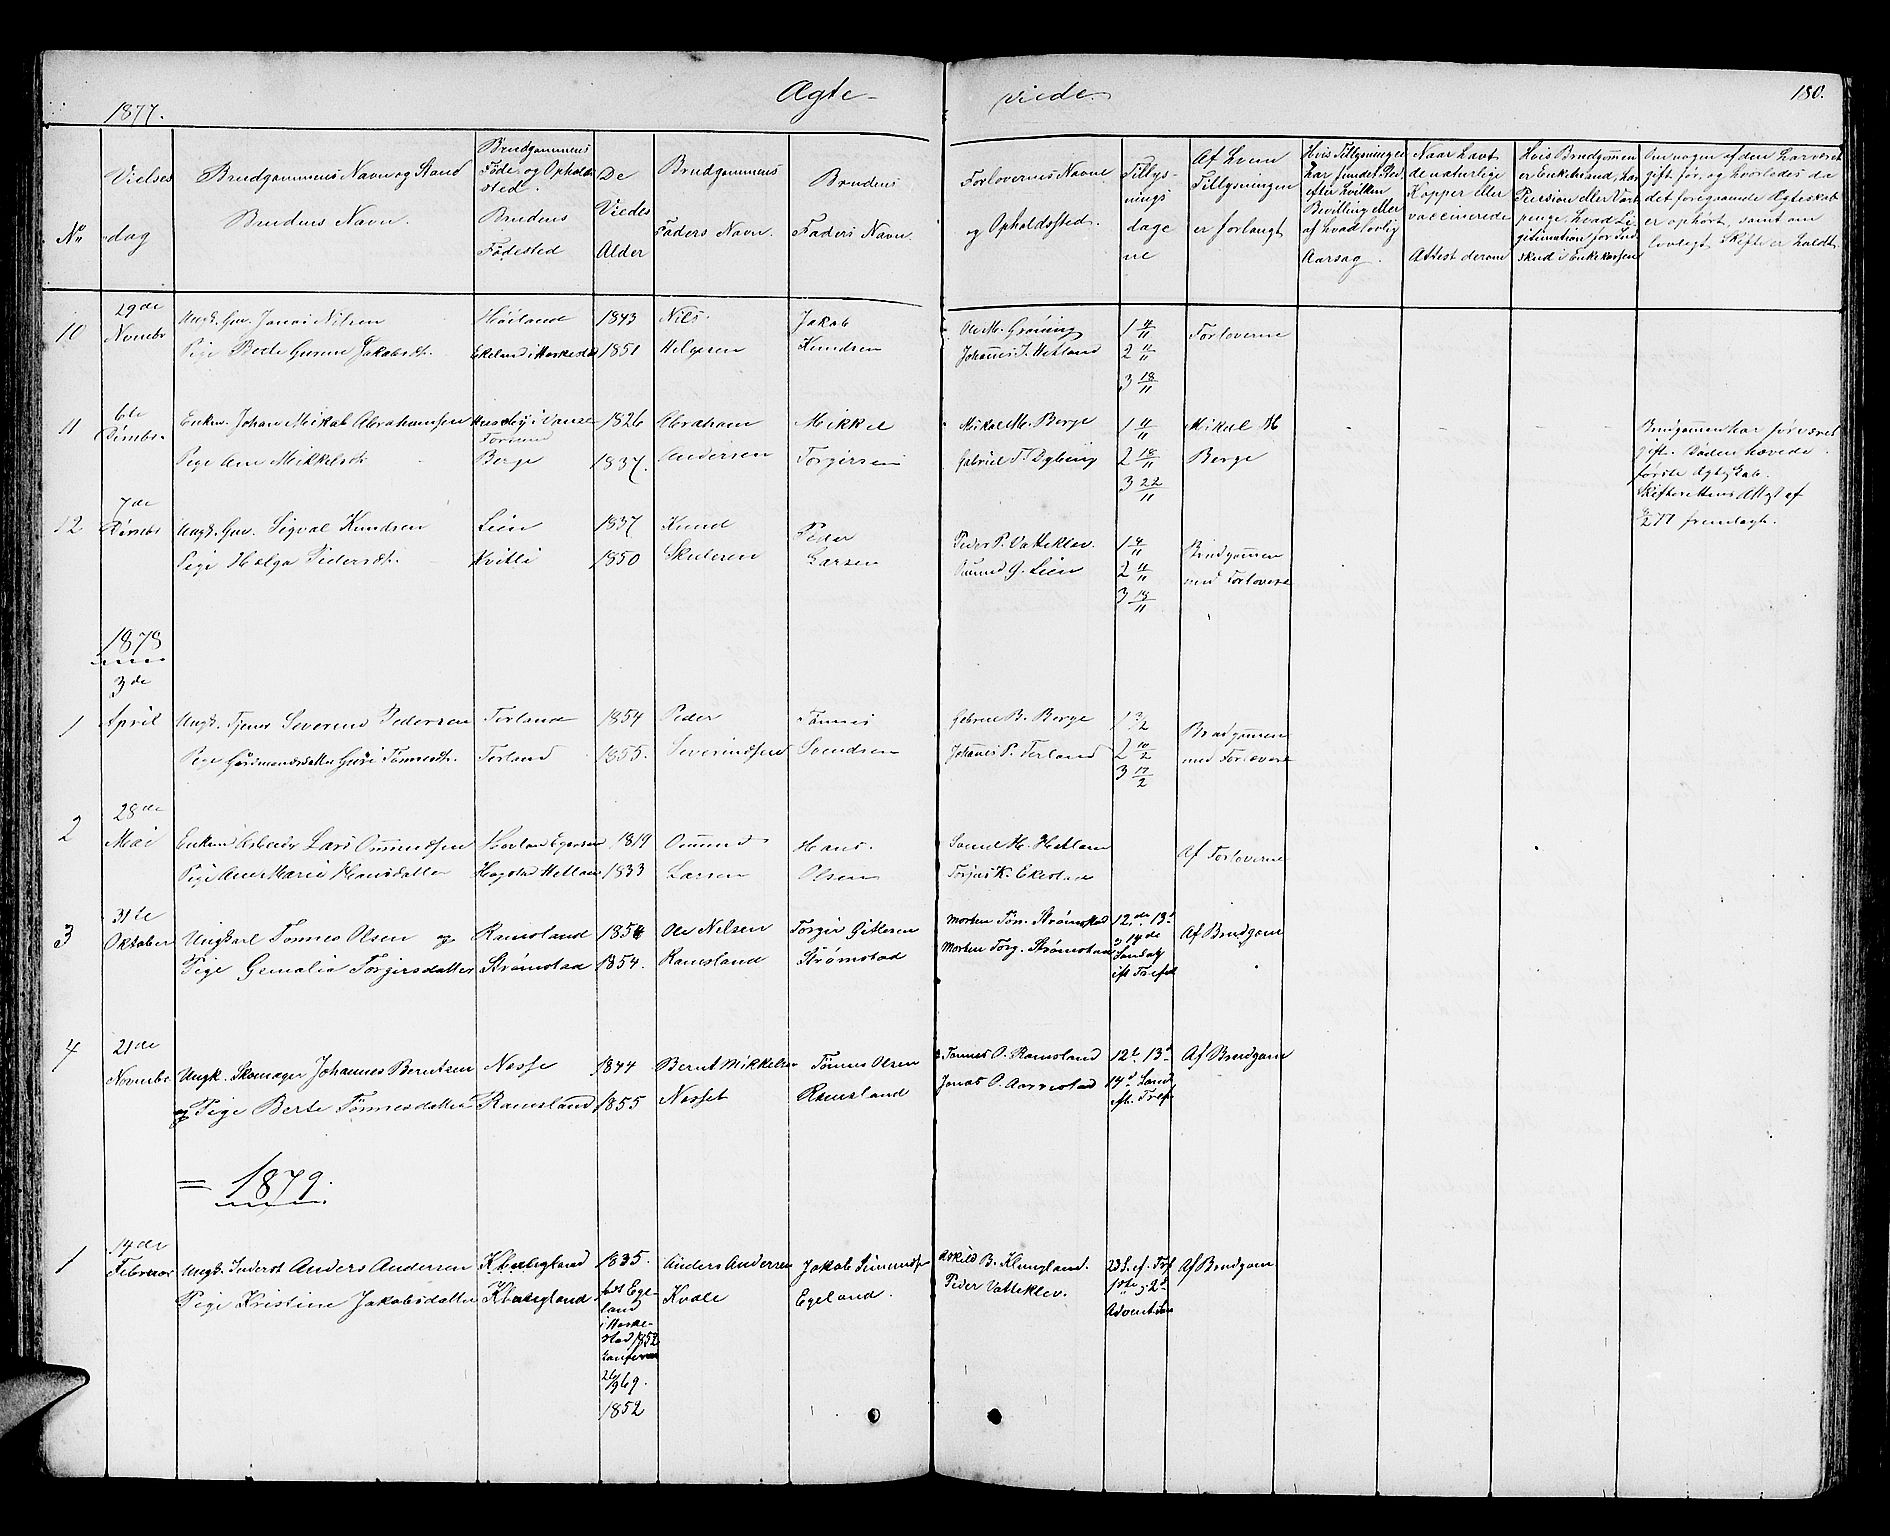 1877.
Ægte-
viede.
180.
No
Vielses
dag
Brudgommens Navn og Stand
Brudens Navn.
Brudgommens
Føde og Opholds
sted.
Brudens
Fødested
De
Viedes
Alder
Brudgommens
Faders Navn.
Brudens
Faders Navn
Forlovernes Navne
og Opholdssted.
Tillys-
nings
dage
ne
Af hvem
Tillysningen
er forlangt
Hvis Tillysning ei
har fundet Sted
efter hvilken
Bevilling eller
af hvad lovlig
Aarsag.
Naar havt
de naturlige
Kopper eller
vaccinerede
Attest derom
Hvis Brudgommen
er Enkemand, har
Pension eller Vart-
penge, hvad Le-
gitimation for Ind-
skud i Enkekassen
Om nogen af dem har været
gift før, og hvorledes da
det foregaaende Ægteskab
er ophørt, samt om
lovligt Skifte er holdt
10
29de
Novembr
Ungk. Gm. Jonas Nilsen
Pige Berte Gurine Jakobsdt.
Høiland
Ekeland i Heskestad
1843
1851
Nils
Helgesen
Jakob
Knudsen
Ole M. Grøning
Johannes J. Hetland
1 4/11
2 11/11
3 18/11
Forloverne
11
6te
Desmbr.
Enkm. Johan Mikal Abrahamsen
Pige Ane Mikkelsdt.
Huseby i Vanse
Berge
1826
1837.
Abraham
Andersen
Mikkel
Torgersen
Mikal M. Berge
Gabriel T. Bybing
1 11/11
2 18/11
3 22/11
Mikal M
Berge
Brudgommen har før været
gift. Døden hævede
første Ægteskab.
Skifterettens Attest af
fremlagt.
12
7de
Desmbr
Ungk. Gm. Sigval Knudsen
Pige Helga Pedersdt.
Lien
Kvitli
1837
1850
Knud
Skelesen
Peder
Larsen
Peder P. Vatteklev.
Omund G. Lien
1 4/11
2 11/11
3 18/11
Brudgommen
med Forlovere
1878
1
3de
April
Ungk. Tjener Severin Pedersen
Pige Gårdmandsdatter Guri Tønnesdt.
Terland
Terland
1854
1855.
Peder
Severindsen
Tønnes
Svendsen
Gabriel B. Berge
Johanes P. Terland
1 3/2
2 10/2
3 17/2
Brudgommen
med Forlovere
2
28de
Mai
Enkem. Arbeider Lars Omundsen
Pige Ane Marie Hansdatter
Hovland Egersun
Hegstad Hetland
1819
1833
Omund
Larsen
Hans
Olsen
M. Hetland
K. Ekestad
Af Forloverne
3
31te
Oktober
Ungkarl Tønnes Olsen og
Pige Gemalia Torgersdatter
Ramsland
Strømstad
1854
1854.
Ole Nilsen
Ramsland
Torger Gitlesen
Strømstad
Morten Tøn. Strømstad
Morten Torg. Strømstad
12.de 13.d
og 14de
Søndag
eft Trefol
Af Brudgom
4
21de
Novmbr
Ungk. Skomager Johannes Berntsen
og Pige Berte Tønnesdatter
Nesse
Ramsland
1844
1855
Bernt Mikkelsen
Nesset
Tønnes Olsen
Ramsland
Tønnes O. Ramsland
Jonas P. Aarrestad
12t. 13d
14d Sønd
eft. Tref
Af Brudgom
= 1879.
1
14de
Februar
Ungk. Inderst Anders Andersen
Pige Kristine Jakobsdatter
Klungland
Klungland
1835.
født Ege-
land
i Heske-
stad 1852
26/9 69.
1852
Anders Andersen
Kvale
Jakob Simonsen
Egeland.
Askild B. Klungland.
Peder Vatteklev.
23 S. ef. Tref
1ste og 2d
Advent Søn
Af Brudgom